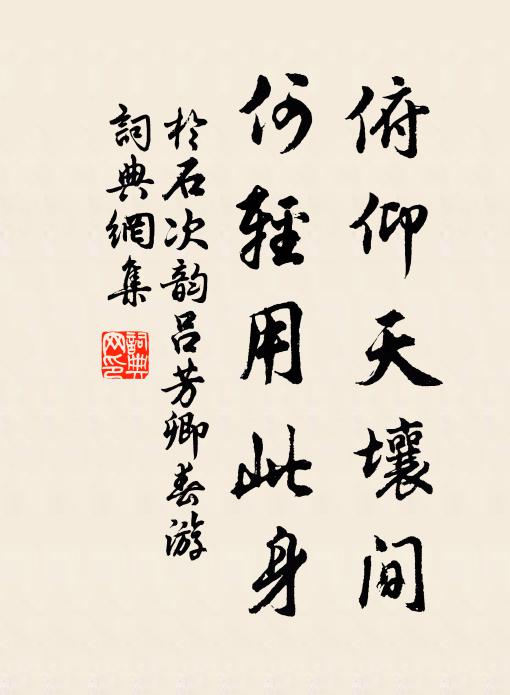 俯仰天壤间
何輕用此身
於石次韵吕芳卿春游
詞典網集
詞典
网印